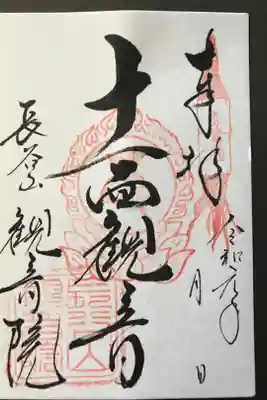 奉拝
令和 年 月 日
十一面観音
長谷山 観音院